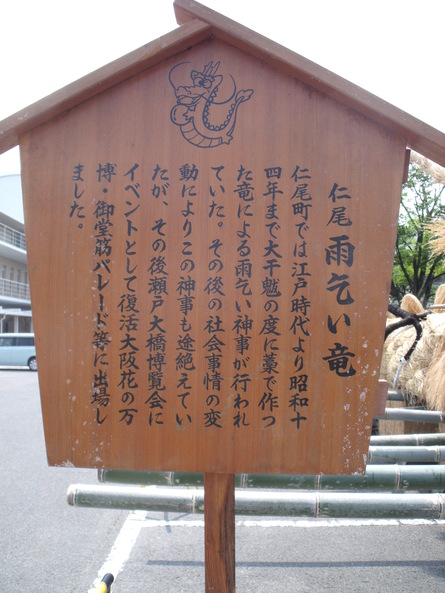 仁尾 雨乞い竜
仁尾町では江戸時代より昭和十
四年まで大干魃の度に藁で作っ
た竜による雨乞い神事が行われ
ていた。その後の社会事情の変
動によりこの神事も途絶えてい
たが、その後瀬戸大橋博覧会に
イベントとして復活大阪花の万
博・御堂筋パレード等に出場し
ました。